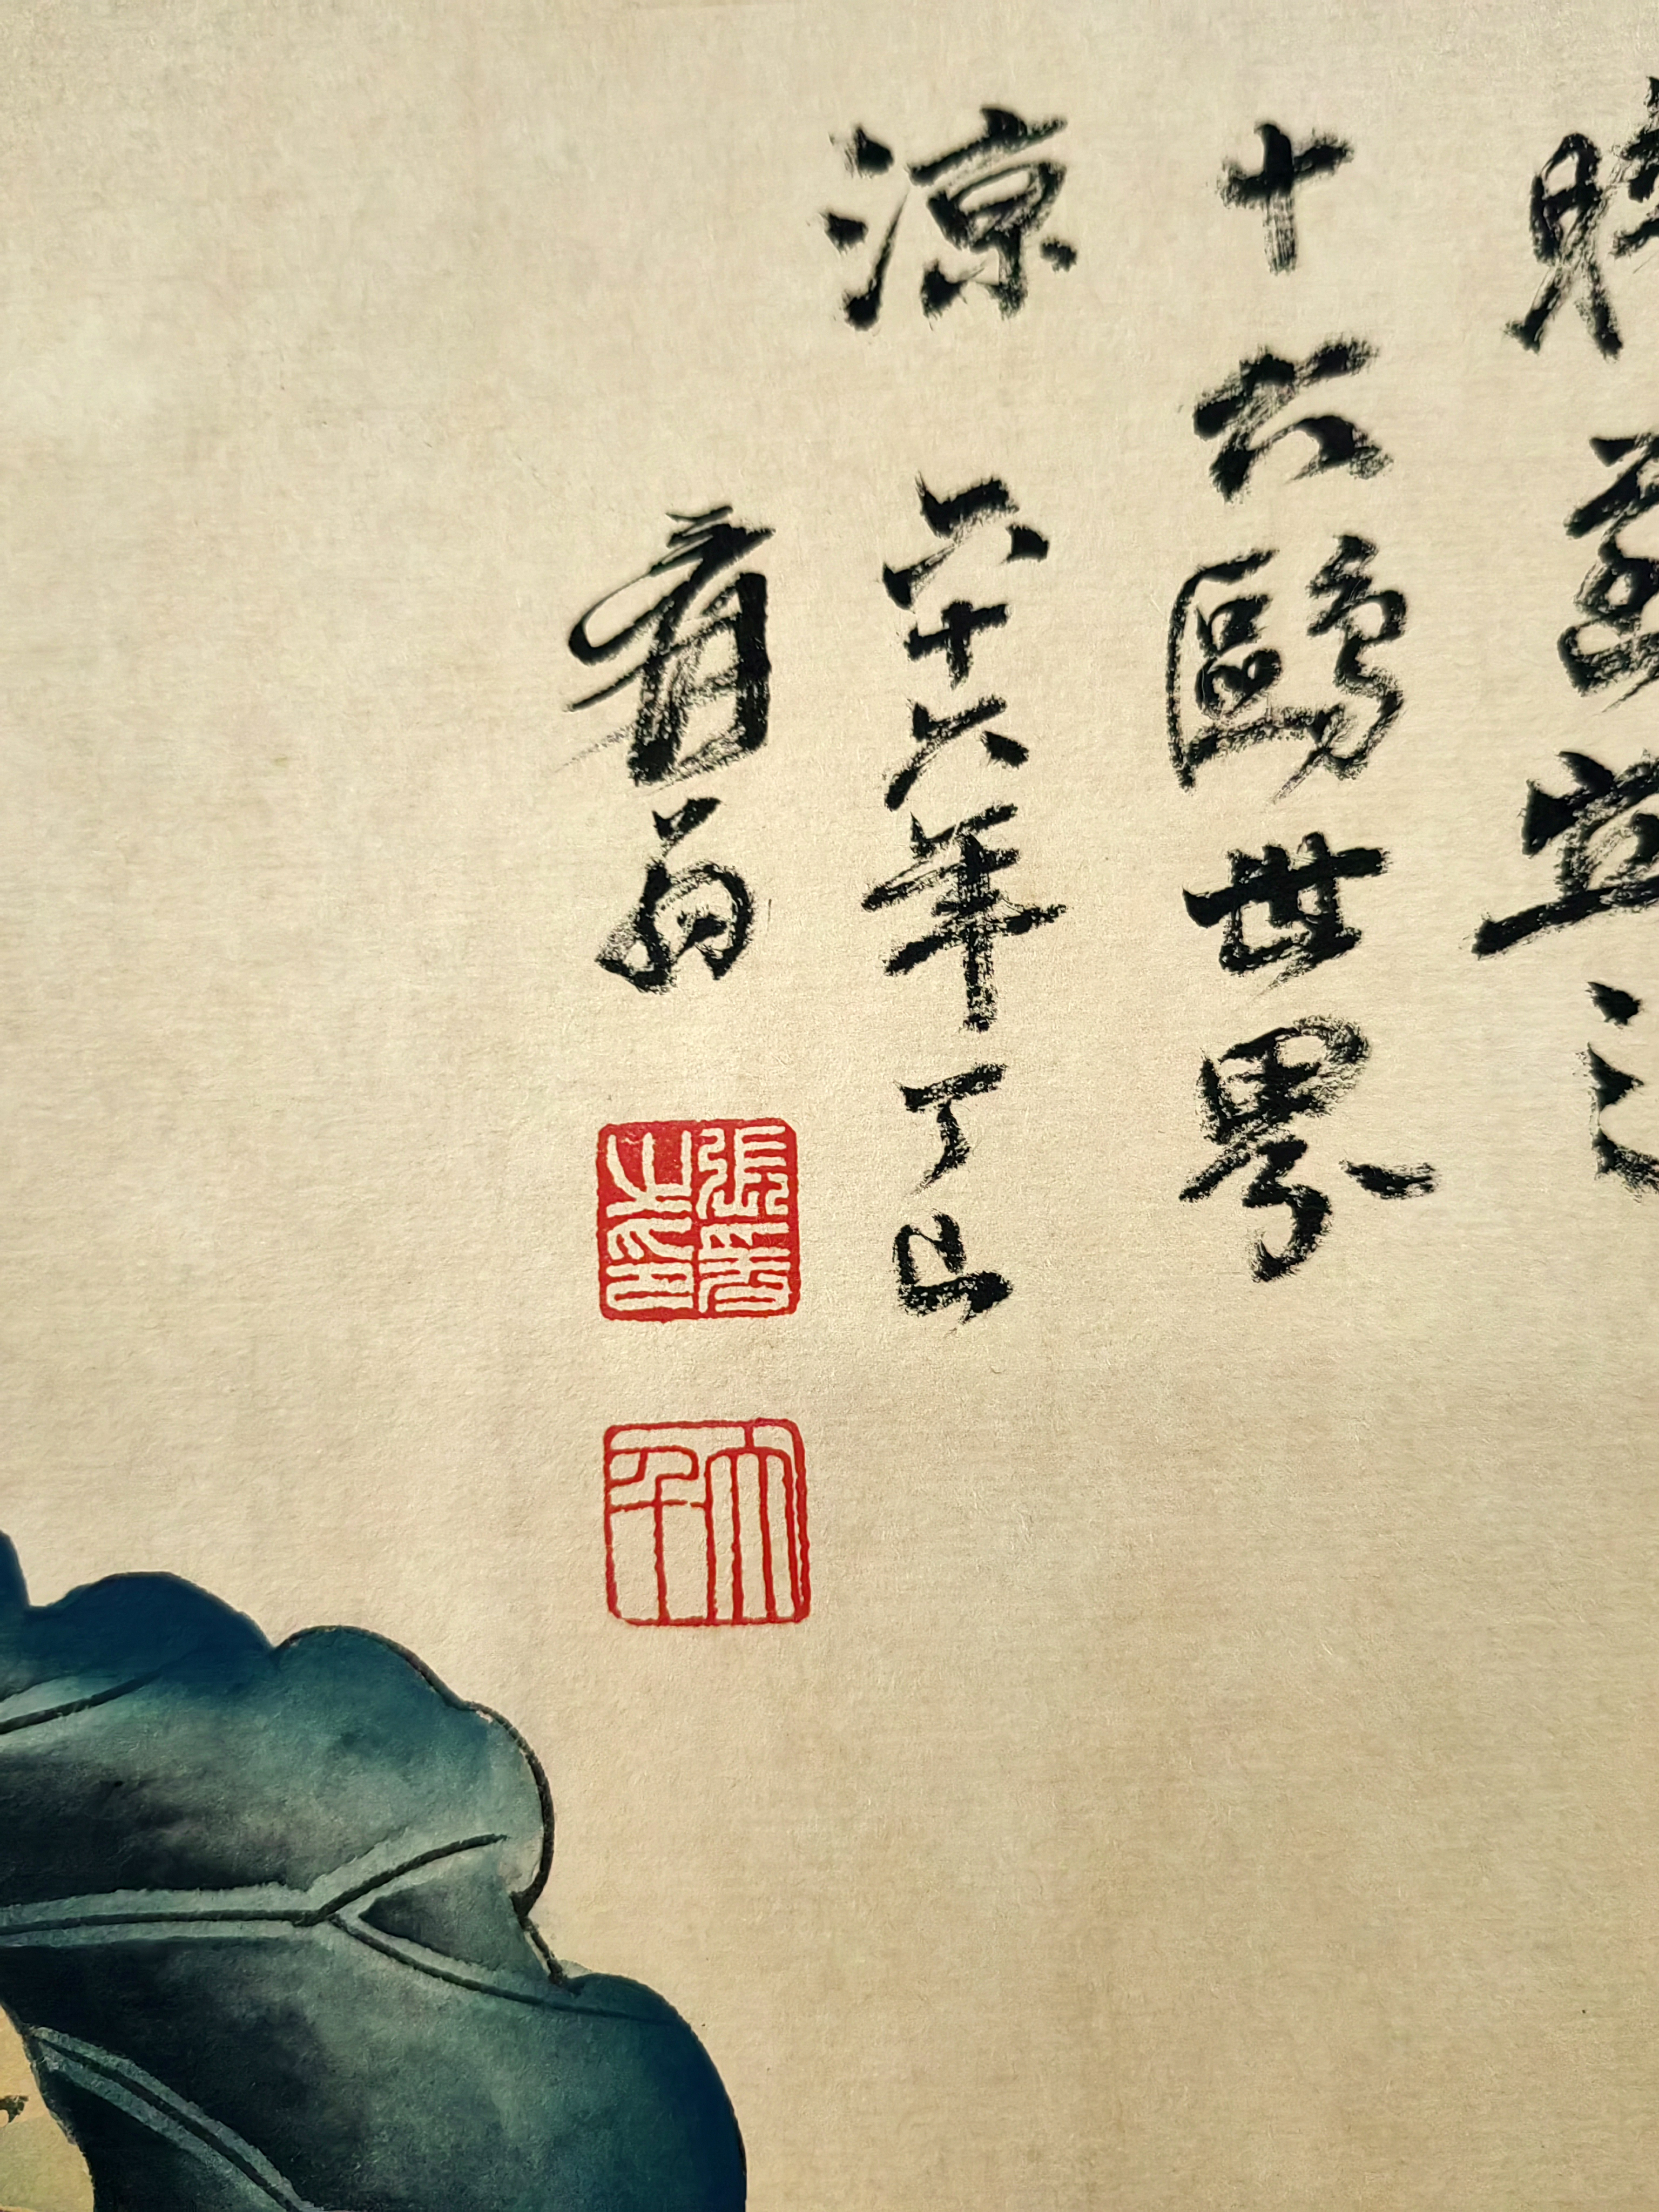 宜
十六鷗世界
涼 六十六年丁巳
爰翁
張爰之印
大千